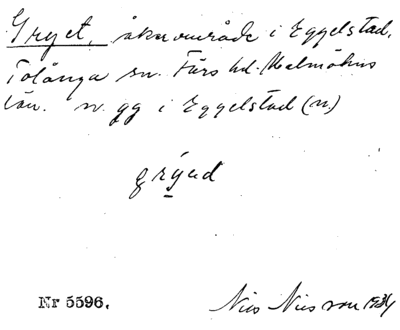 Gryet, åkerområde i Eggelstad,
Tolånga sn. Färs hd. Malmöhus
län. n. gg i Eggelstad (n.)
Nr 5596. Nils Nilsson 1934